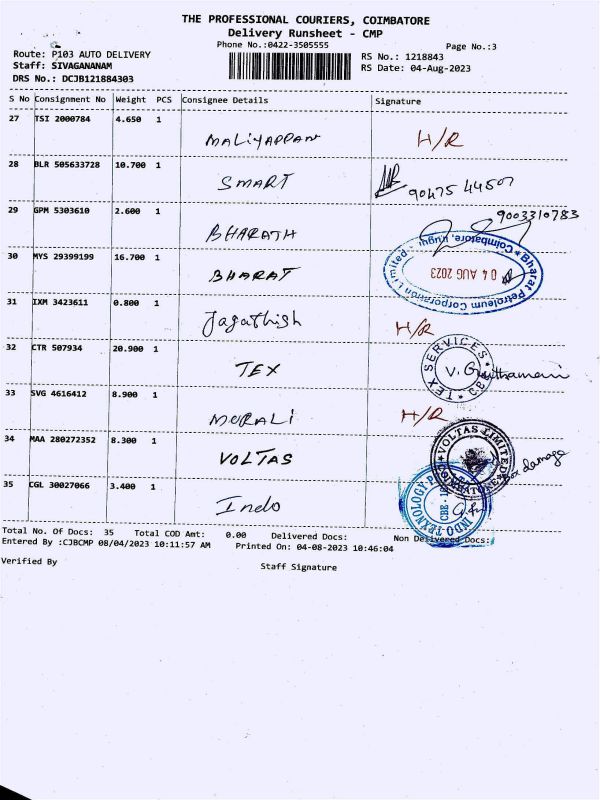 THE PROFESSIONAL COURIERS, COIMBATORE
Delivery Runsheet - CMP
Phone No.:0422-3505555
Page No.:3
Route: P103 AUTO DELIVERY
Staff: SIVAGANANAM
DRS No.: DCJB121884303
RS No.: 1218843
RS Date: 04-Aug-2023
S No Consignment No Weight PCS Consignee Details Signature
27 TSI 2000784 4.650 1
MALIYAPPAN H/R
28 BLR 505633728 10.700 1
SMART 90475 44507
29 GPM 5303610 2.600 1 9003310783
BHARATH
30 MYS 29399199 16.700 1
BHARAT Bharat Petroleum Corporation Limited Coimbatore 04 AUG 2023
31 IXM 3423611 0.800 1
Jagathish H/R
32 CTR 507934 20.900 1
TEX TEX SERVICES CBE V.
33 SVG 4616412 8.900 1
MURALI H/R
34 MAA 280272352 8.300 1
VOLTAS VOLTAS LIMITED Box damage
35 CGL 30027066 3.400 1
Indo INDO TEXNOLOGY CBE
Total No. Of Docs: 35 Total COD Amt: 0.00 Delivered Docs: Non Delivered Docs:
Entered By :CJBCMP 08/04/2023 10:11:57 AM Printed On: 04-08-2023 10:46:04
Verified By Staff Signature